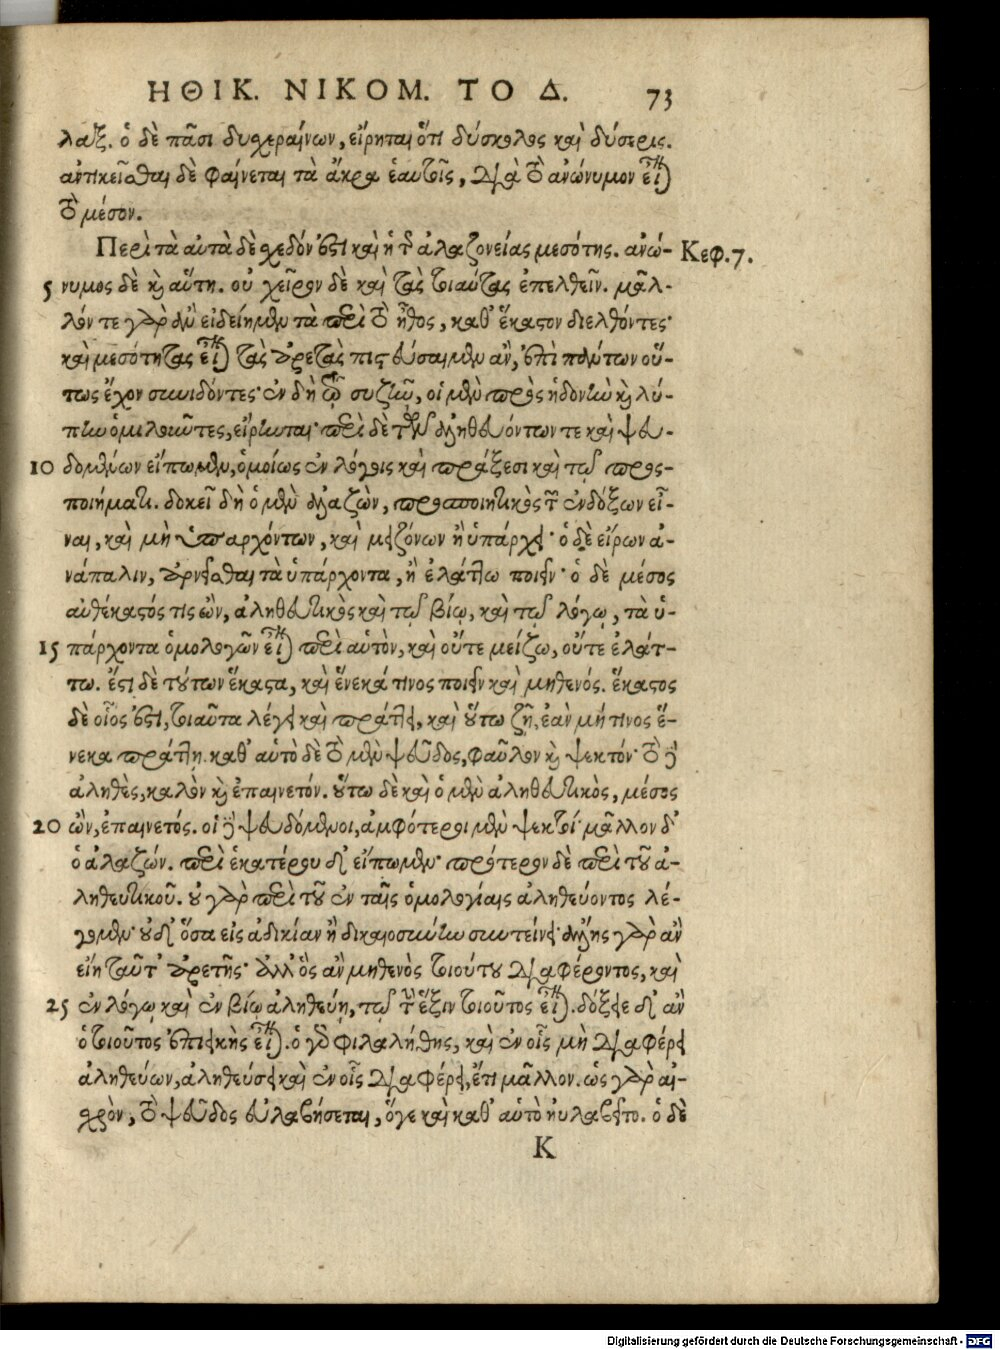 ΗΘΙΚ. ΝΙΚΟΜ. ΤΟ Δ. 73
λαξ. ὁ δὲ πᾶσι δυχεραίνων, εἴρηται ὅτι δύσκολος καὶ δύσερις.
ἀντικεῖσθαι δὲ φαίνεται τὰ ἄκρα ἑαυτοῖς, διὰ τὸ ἀνώνυμον εἶναι
τὸ μέσον.
Περὶ τὰ αὐτὰ δὲ σχεδόν ἐστι καὶ ἡ τῆς ἀλαζονείας μεσότης. ἀνώ- Κεφ. 7.
5 νυμος δὲ κὶ αὕτη. οὐ χεῖρον δὲ καὶ τὰς τοιαύτας ἐπελθεῖν. μᾶλ-
λόν τε γὰρ ἂν εἰδείημεν τὰ περὶ τὸ ἦθος, καθ' ἕκαστον διελθόντες·
καὶ μεσότητας εἶναι τὰς ἀρετὰς πιστεύσαιμεν ἂν, ἐπὶ πάντων οὕ-
τως ἔχον συνιδόντες· ἐν δὴ τῷ συζῆν, οἱ μὲν πρὸς ἡδονὴν κὶ λύ-
πην ὁμιλοῦντες, εἴρηνται· περὶ δὲ τῶν ἀληθευόντων τε καὶ ψευ-
10 δομένων εἴπωμεν, ὁμοίως ἐν λόγοις καὶ πράξεσι καὶ τῷ προσ-
ποιήματι. δοκεῖ δὴ ὁ μὲν ἀλαζὼν, προσποιητικὸς τῶν ἐνδόξων εἶ-
ναι, καὶ μὴ ὑπαρχόντων, καὶ μειζόνων ἢ ὑπάρχει· ὁ δὲ εἴρων ἀ-
νάπαλιν, ἀρνεῖσθαι τὰ ὑπάρχοντα, ἢ ἐλάττω ποιεῖν· ὁ δὲ μέσος
αὐθέκαστός τις ὢν, ἀληθευτικὸς καὶ τῷ βίῳ, καὶ τῷ λόγῳ, τὰ ὑ-
15 πάρχοντα ὁμολογῶν εἶναι περὶ αὑτὸν, καὶ οὔτε μείζω, οὔτε ἐλάτ-
τω. ἔστι δὲ τούτων ἕκαστα, καὶ ἕνεκά τινος ποιεῖν καὶ μηθενός. ἕκαστος
δὲ οἷός ἐστι, τοιαῦτα λέγει καὶ πράττει, καὶ οὕτω ζῇ, ἐὰν μή τινος ἕ-
νεκα πράττῃ. καθ' αὑτὸ δὲ τὸ μὲν ψεῦδος, φαῦλον κὶ ψεκτόν· τὸ δὲ
ἀληθὲς, καλὸν κὶ ἐπαινετόν. οὕτω δὲ καὶ ὁ μὲν ἀληθευτικὸς, μέσος
20 ὢν, ἐπαινετός. οἱ δὲ ψευδόμενοι, ἀμφότεροι μὲν ψεκτοί· μᾶλλον δ'
ὁ ἀλαζών. περὶ ἑκατέρου δ' εἴπωμεν· πρότερον δὲ περὶ τοῦ ἀ-
ληθευτικοῦ. οὐ γὰρ περὶ τοῦ ἐν ταῖς ὁμολογίαις ἀληθεύοντος λέ-
γομεν· οὐδ' ὅσα εἰς ἀδικίαν ἢ δικαιοσύνην συντείνει· ἄλλης γὰρ ἂν
εἴη ταῦτ' ἀρετῆς· ἀλλ' ὃς ἂν μηθενὸς τοιούτου διαφέροντος, καὶ
25 ἐν λόγῳ καὶ ἐν βίῳ ἀληθεύῃ, τῷ τὴν ἕξιν τοιοῦτος εἶναι. δόξειε δ' ἂν
ὁ τοιοῦτος ἐπιεικὴς εἶναι. ὁ γὰρ φιλαλήθης, καὶ ἐν οἷς μὴ διαφέρει
ἀληθεύων, ἀληθεύσει καὶ ἐν οἷς διαφέρει, ἔτι μᾶλλον. ὡς γὰρ αἰ-
σχρὸν, τὸ ψεῦδος εὐλαβήσεται, ὅγε καὶ καθ' αὑτὸ ηὐλαβεῖτο. ὁ δὲ
K
Digitalisierung gefördert durch die Deutsche Forschungsgemeinschaft - DFG